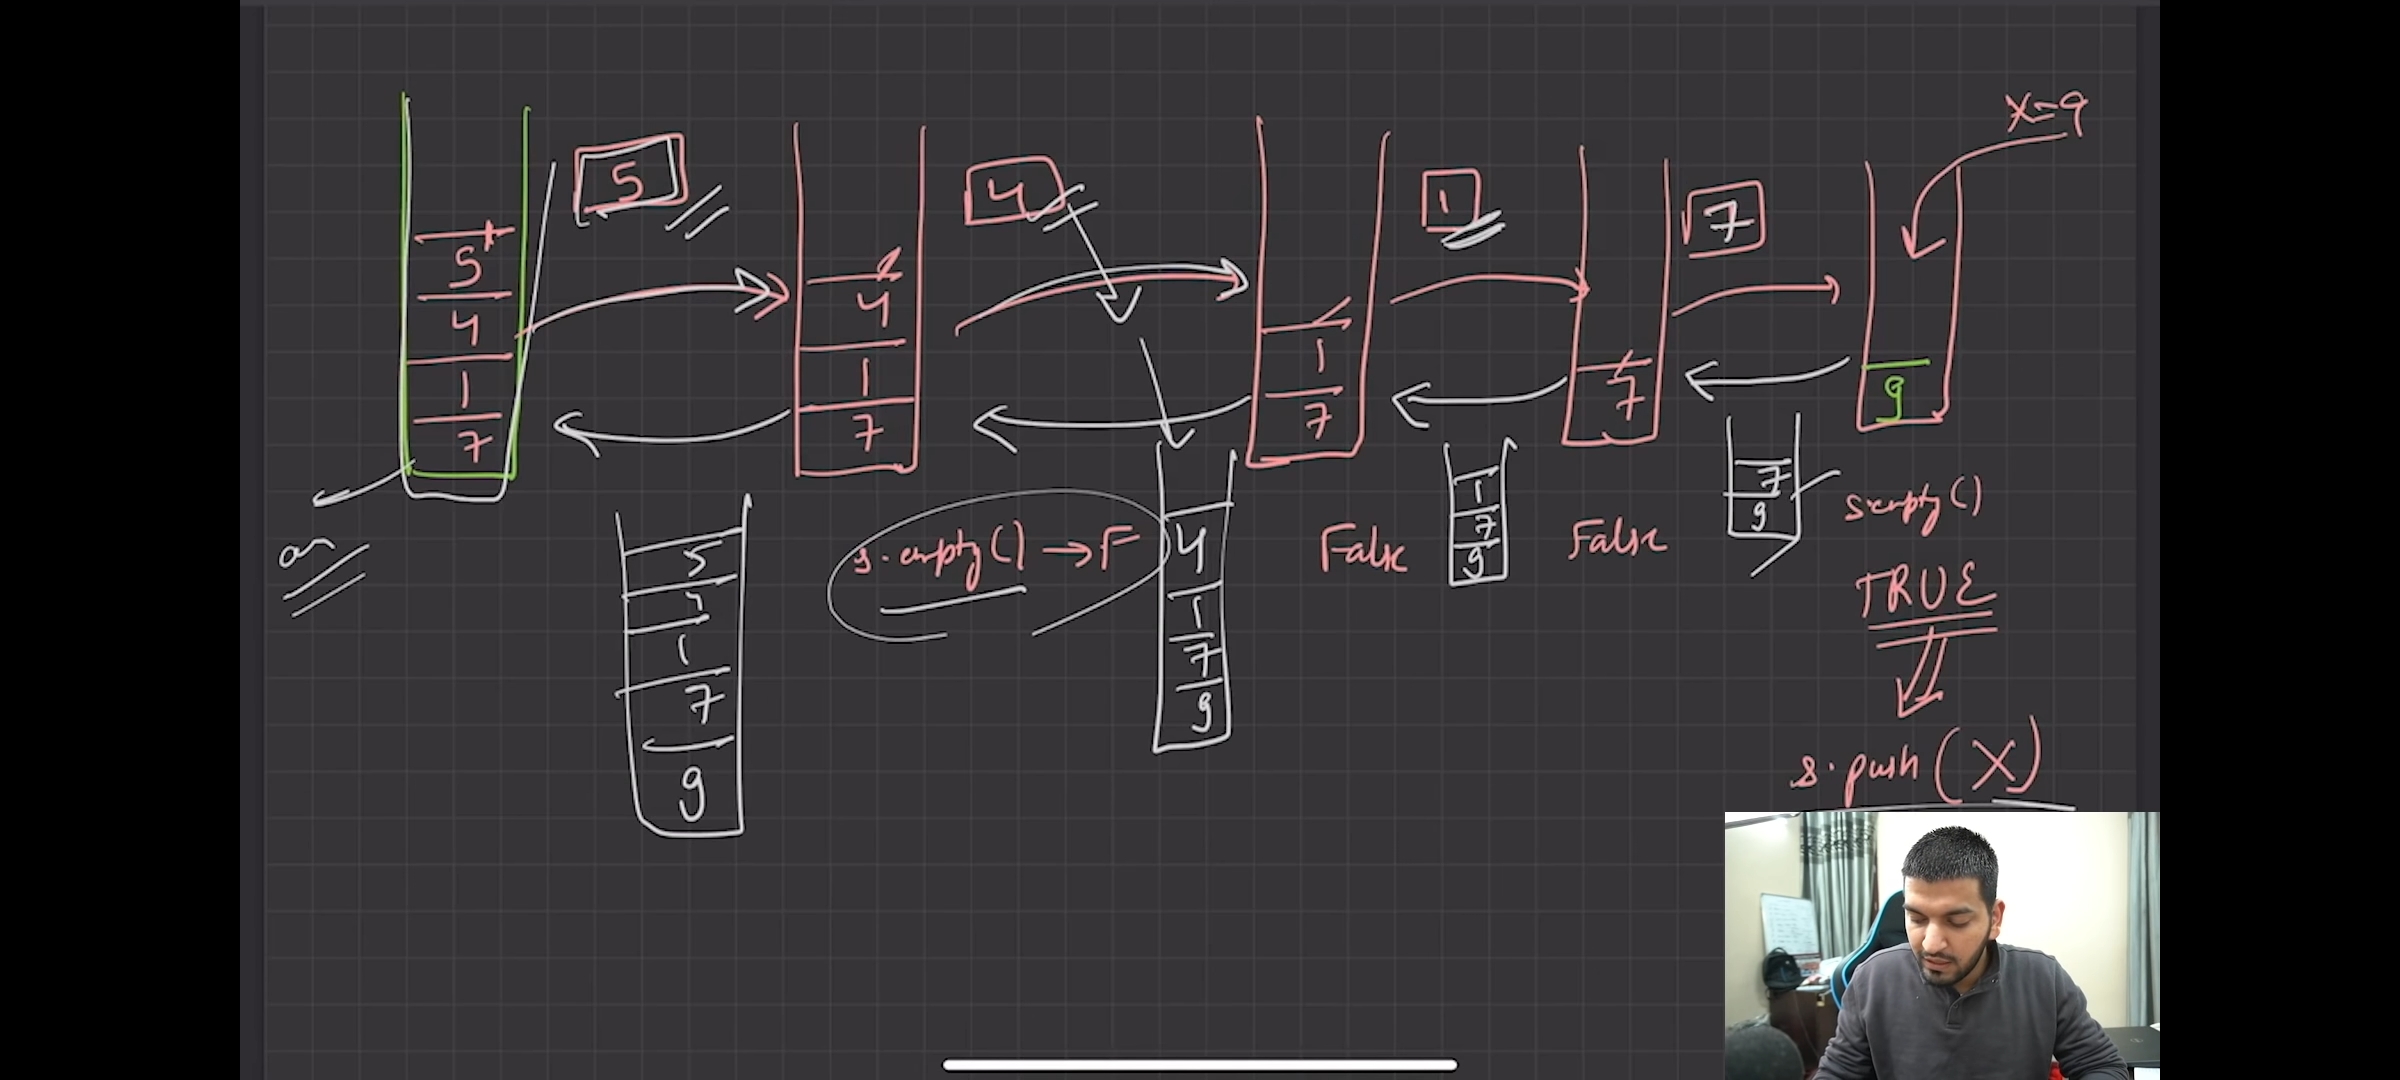 x=9
5
4
1
7
5
4
1
7
4
4
1
7
1
1
7
7
7
9
ans
5
1
7
9
s.empty() → F
4
1
7
9
False
1
7
9
False
7
9
s.empty()
TRUE
s.push(X)